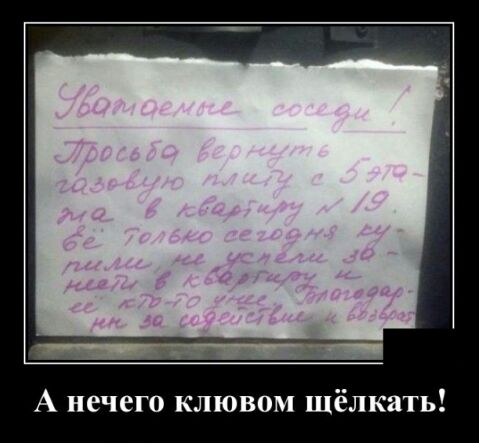 Уважаемые соседи!
Просьба вернуть
газовую плиту с 5 эта-
жа в квартиру № 19.
Её только сегодня ку-
пили не успели за-
нести в квартиру и
её кто-то унёс. Благодар-
ны за содействие и возврат
А нечего клювом щёлкать!